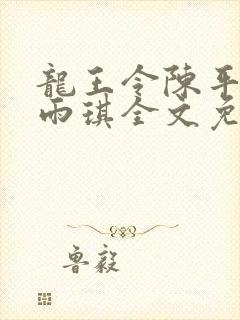 龍王令陳平
雨琪全文免
魯毅